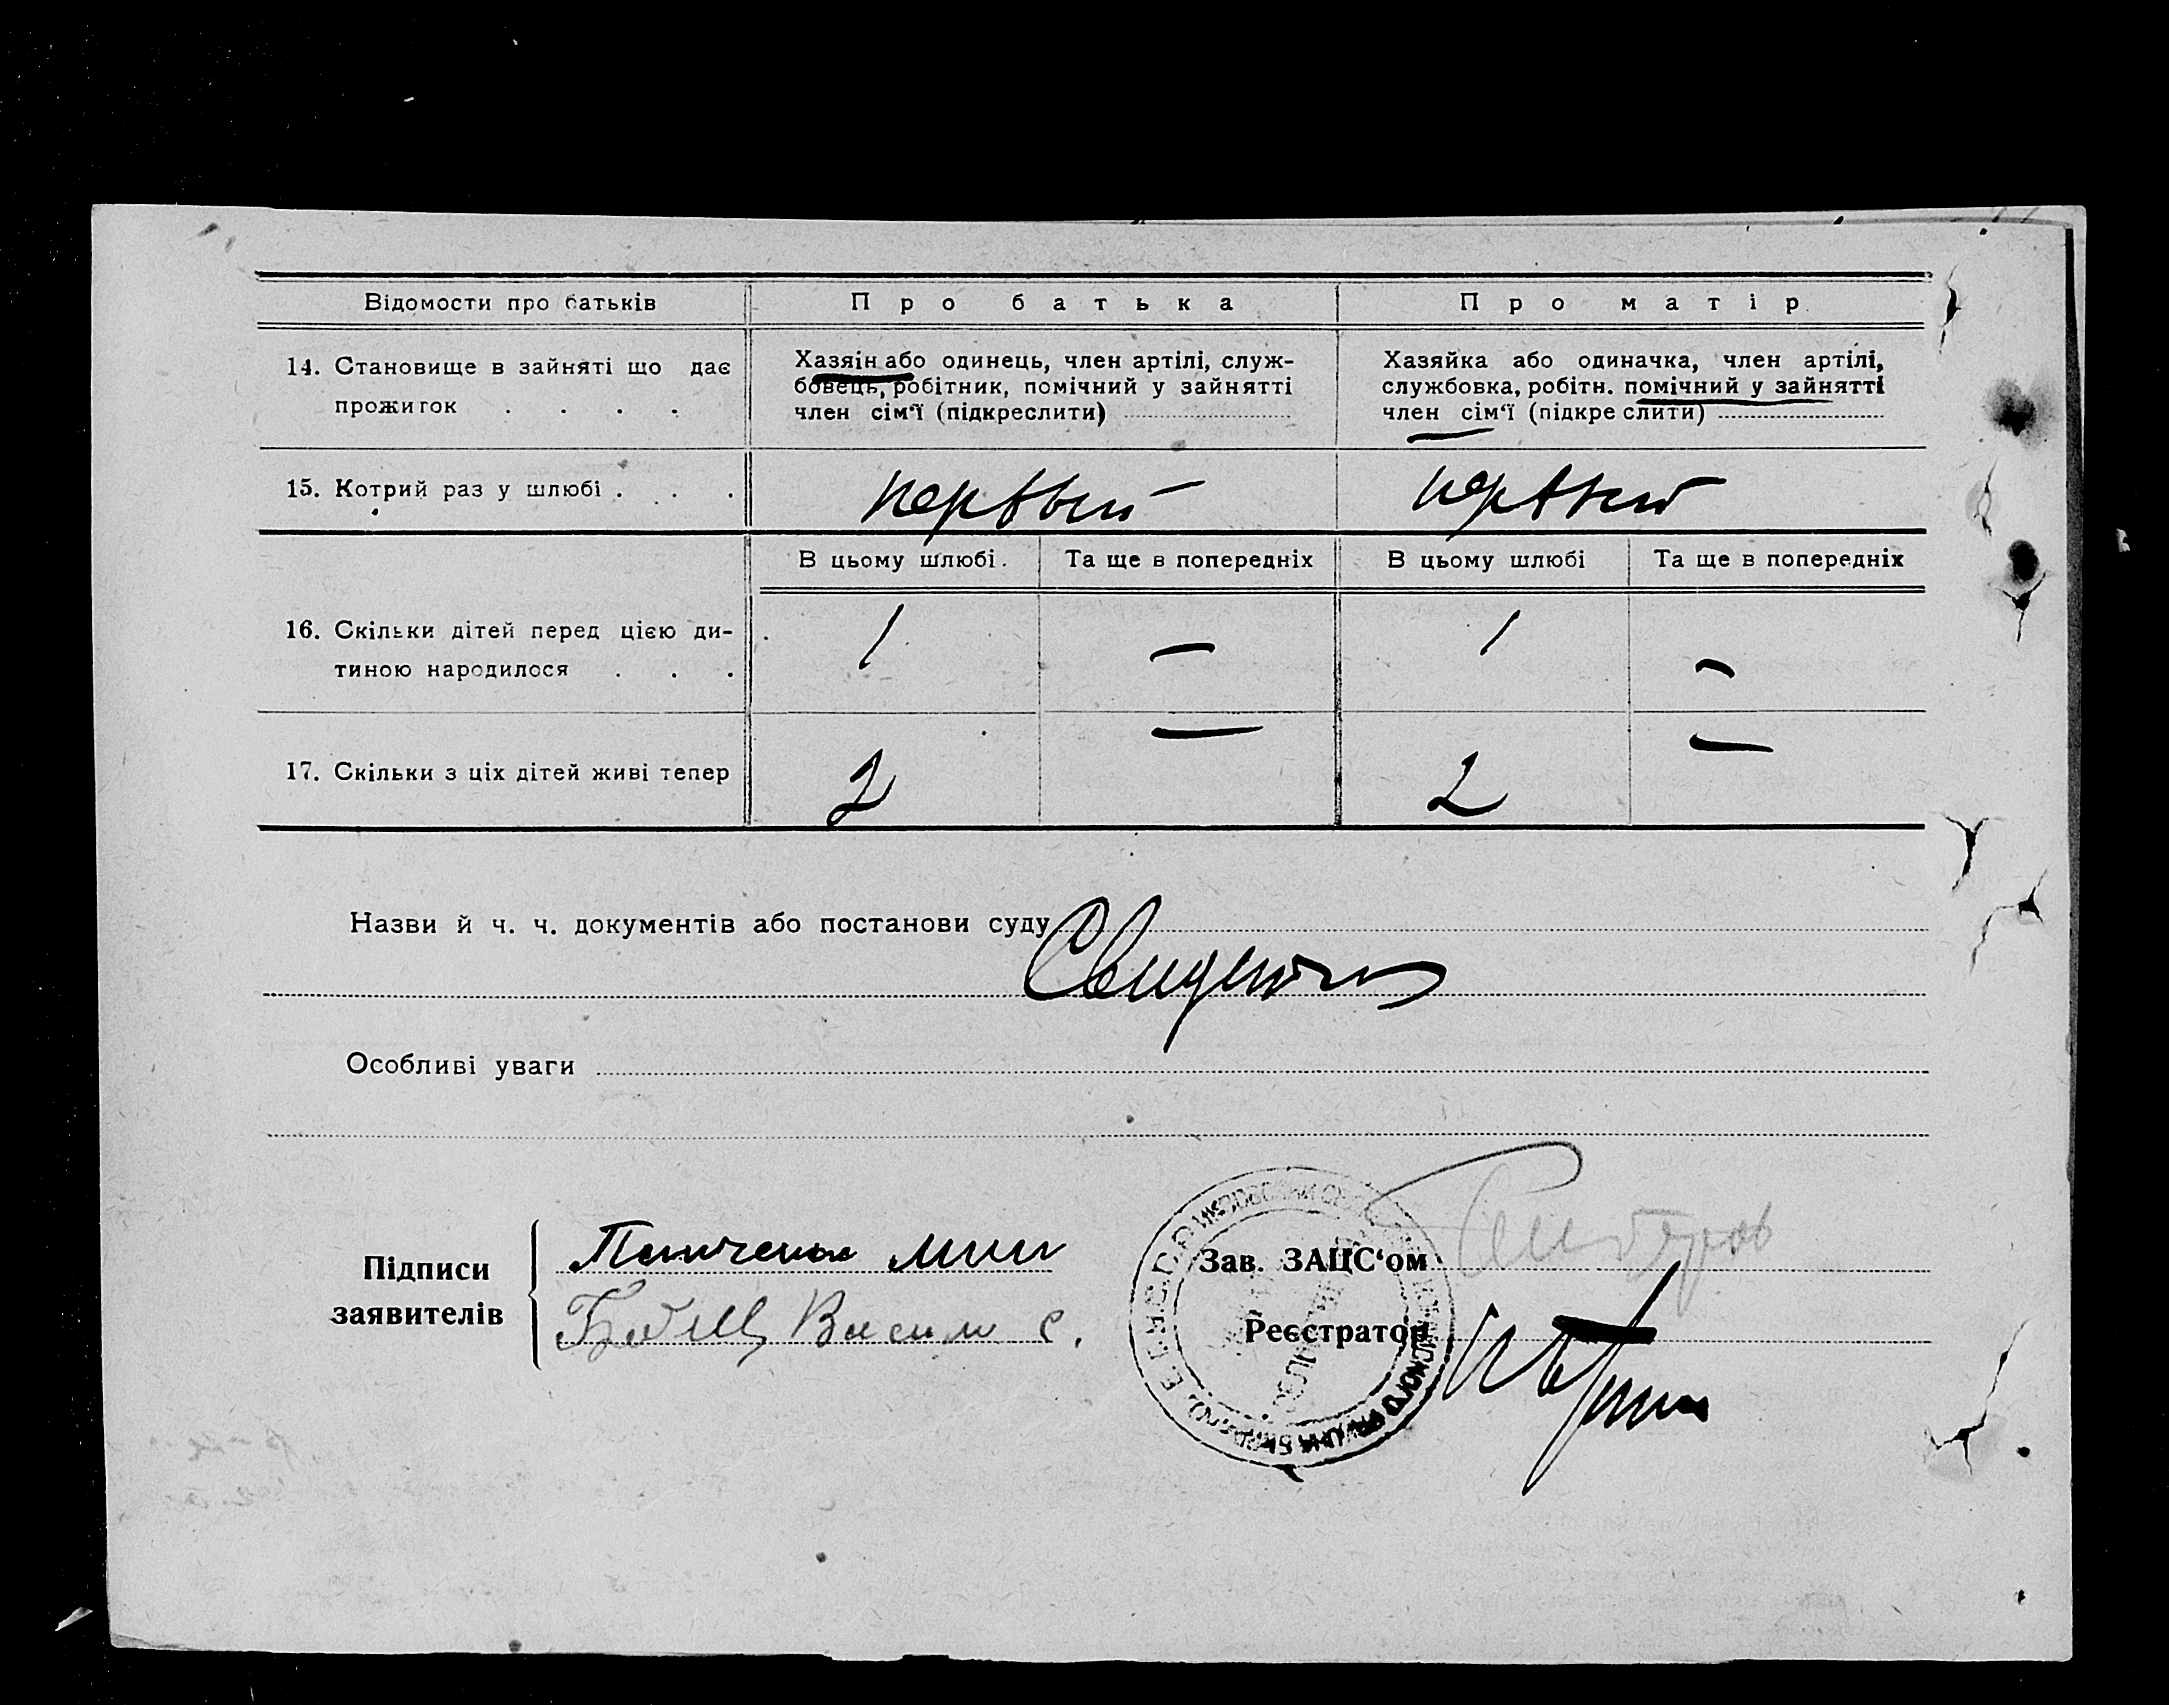 Відомости про батьків Про батька Про матір
14. Становище в зайняті що дає
прожиток . . . .
Хазяін або одинець, член артілі, служ-
бовець, робітник, помічний у зайнятті
член сім'ї (підкреслити)
Хазяйка або одиначка, член артілі,
службовка, робітн. помічний у зайнятті
член сім'ї (підкреслити)
15. Котрий раз у шлюбі . . . первый первый
В цьому шлюбі. Та ще в попередніх В цьому шлюбі Та ще в попередніх
16. Скільки дітей перед цією ди-
тиною народилося . . .
1 — 1 —
17. Скільки з ціх дітей живі тепер 2 — 2 —
Назви й ч. ч. документів або постанови суду
Особливі уваги
Підписи
заявителів
Зав. ЗАЦС'ом
Реєстратор